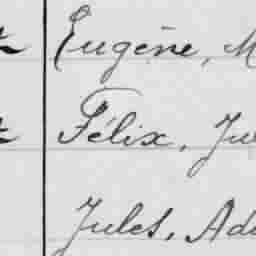 Eugène, M
Félix, Ju
Jules, Ad